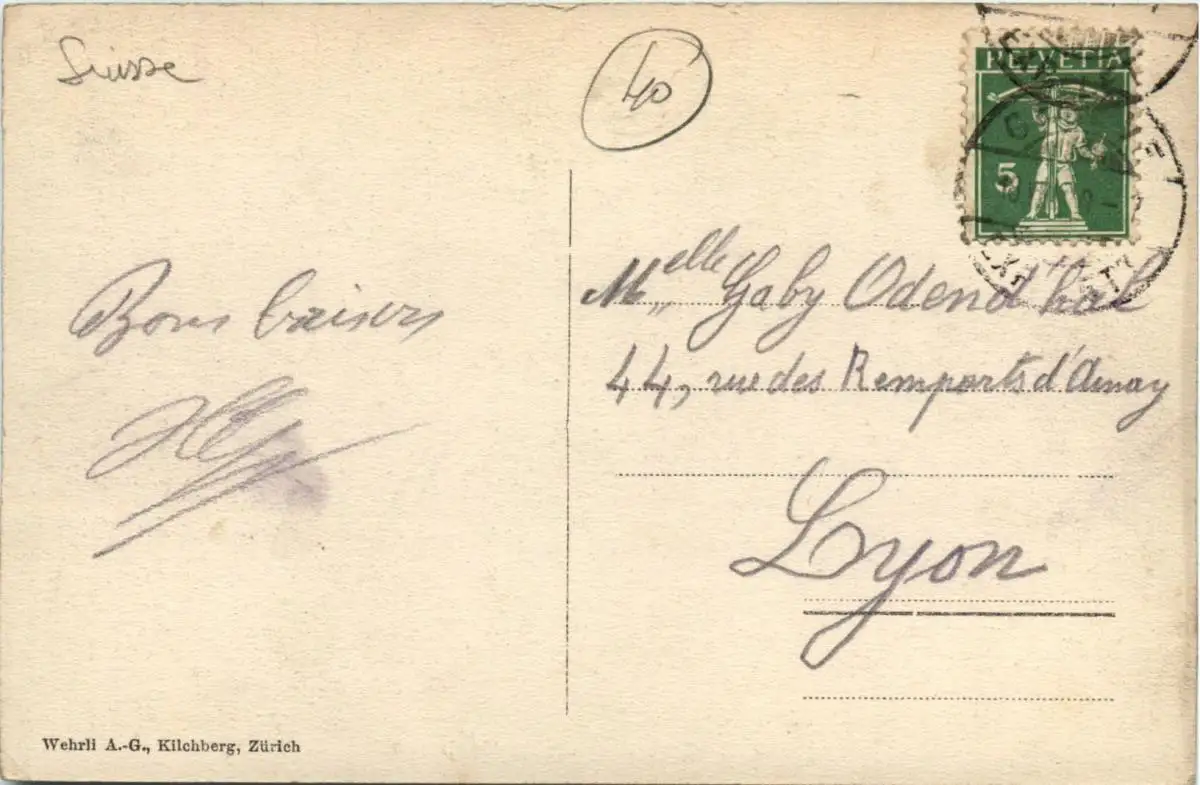 Suisse
40
HELVETIA
5
Bons baisers
Melle Gaby Odend'hal
44, rue des Remparts d'Ainay
Lyon
Wehrli A.-G., Kilchberg, Zürich